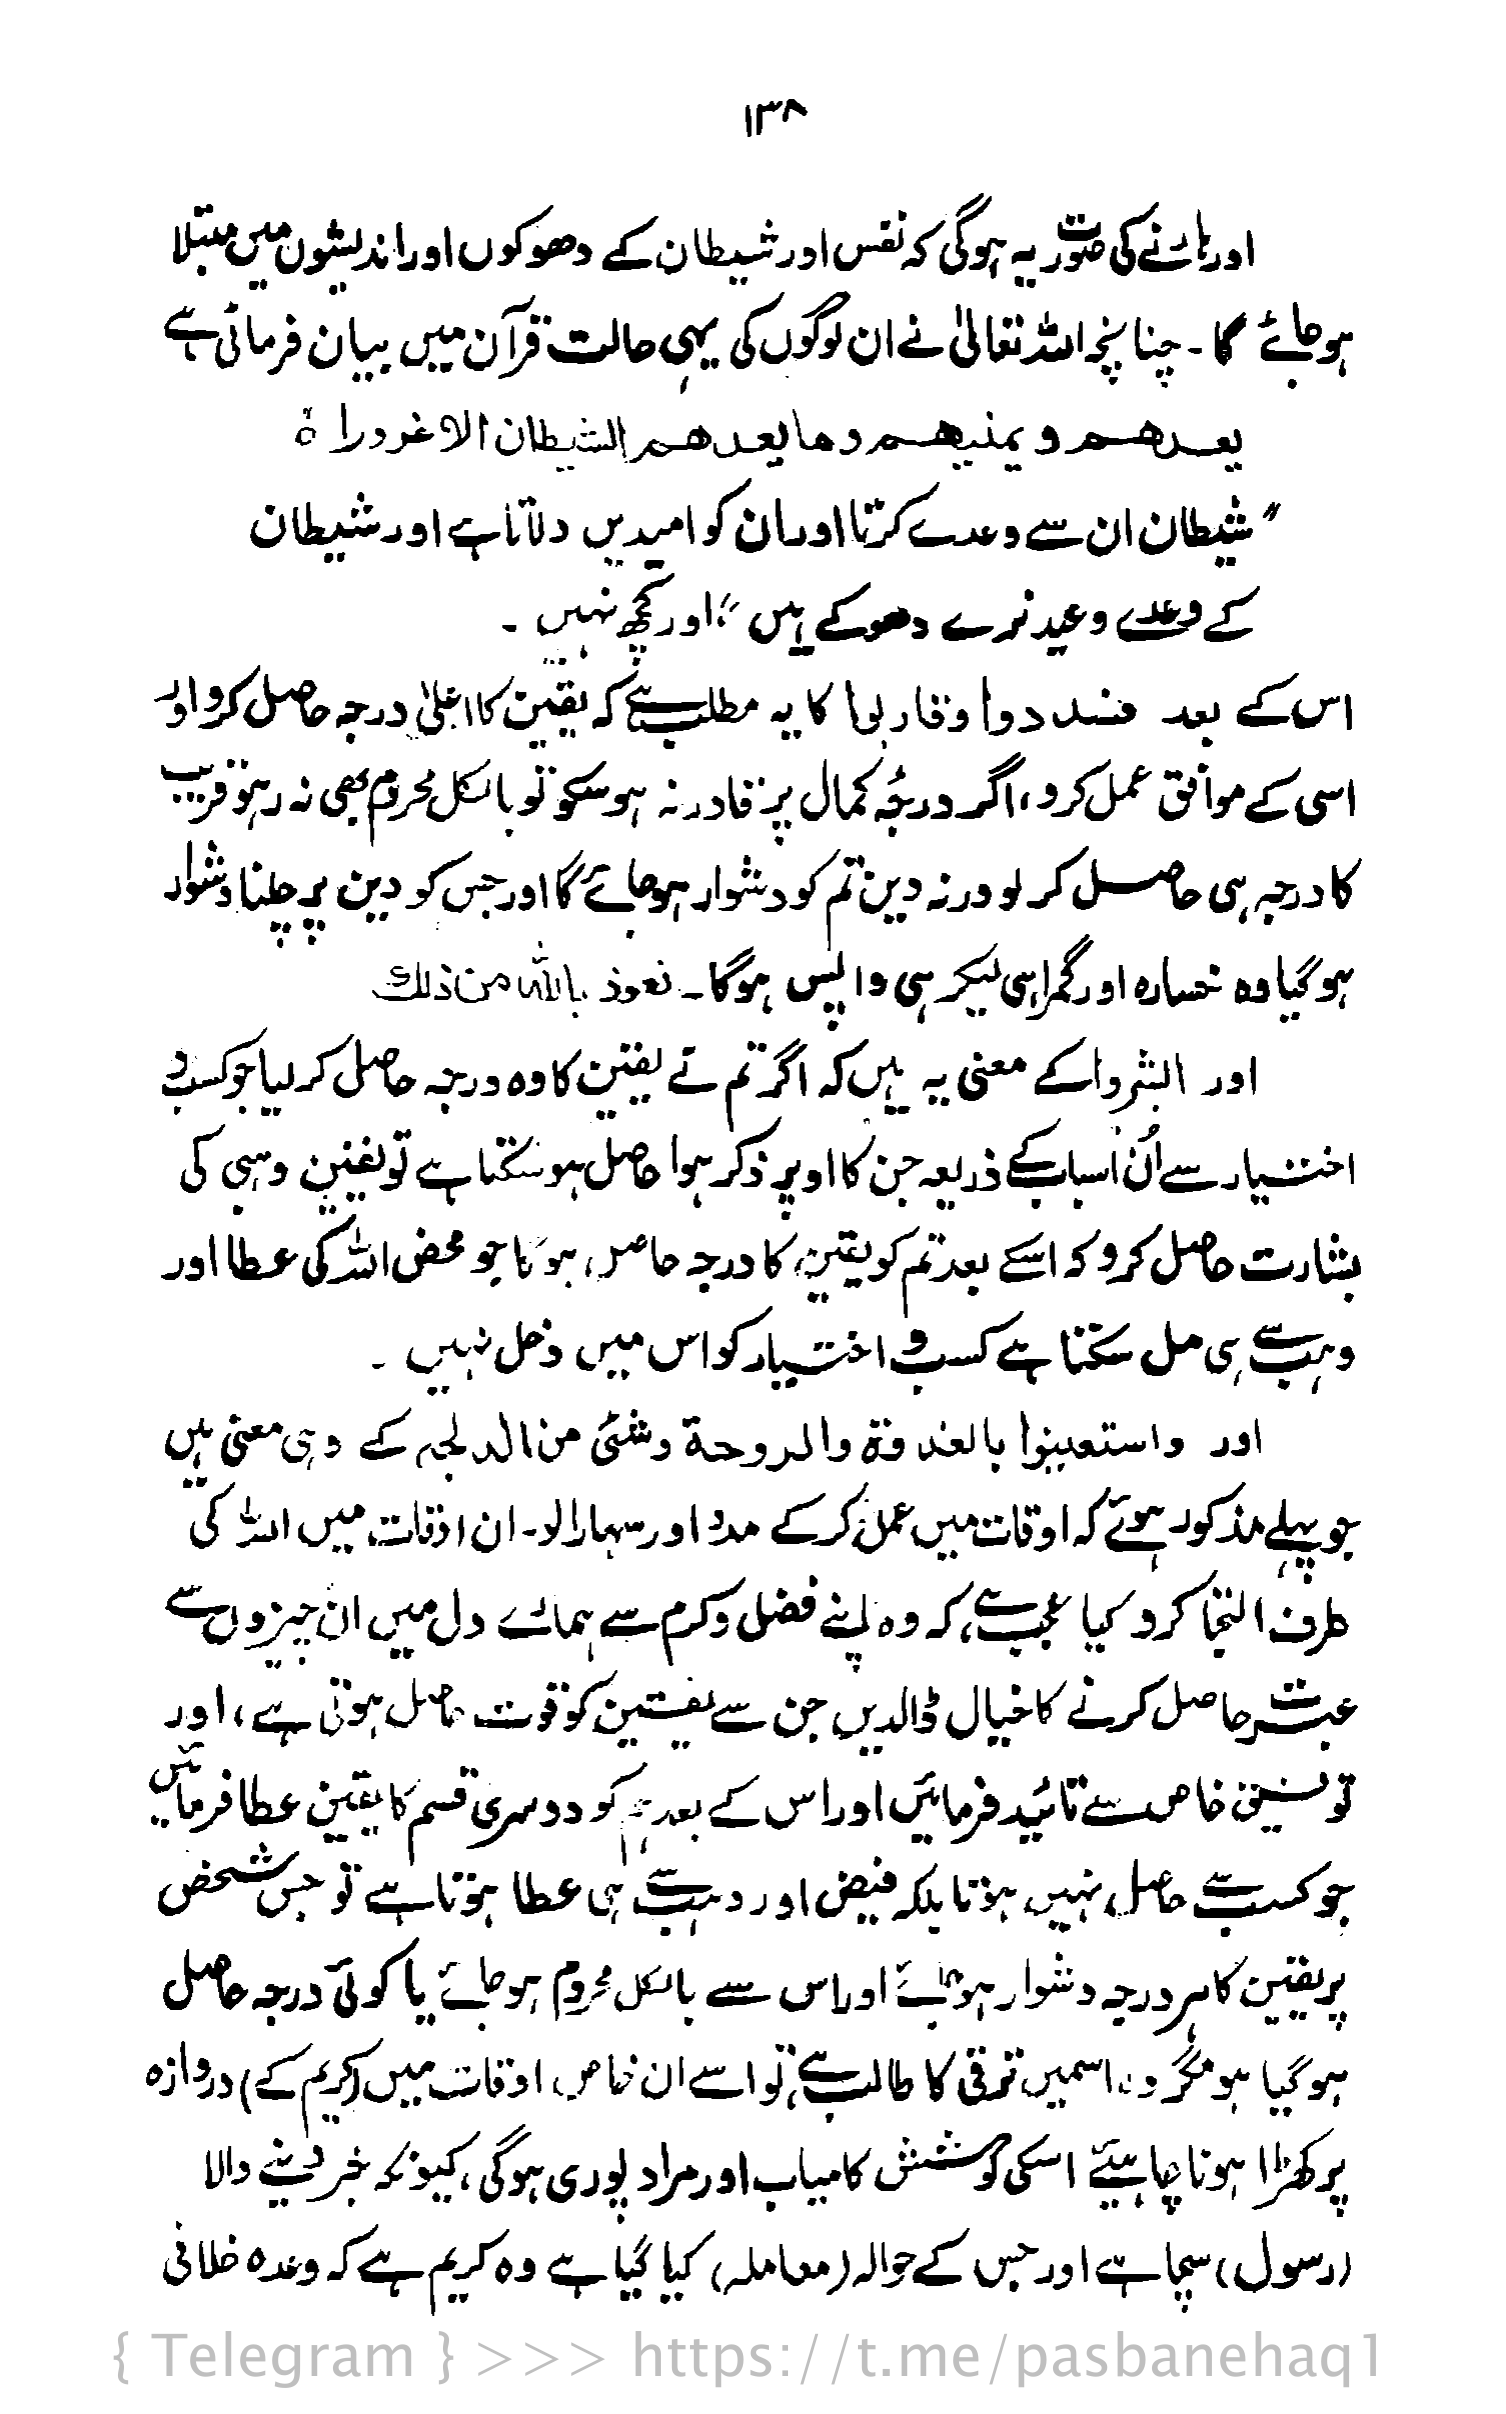 ۱۳۸
اور ہارنے کی صورت یہ ہوگی کہ نفس اور شیطان کے دھوکوں اور اندیشوں میں مبتلا
ہو جائے گا۔ چنانچہ اللہ تعالیٰ نے ان لوگوں کی یہی حالت قرآن میں بیان فرمائی ہے
یعدھم و یمنیھم وما یعدھم الشیطان الا غرورا ہ
"شیطان ان سے وعدے کرتا اور ان کو امیدیں دلاتا ہے اور شیطان
کے وعدے وعید نرے دھوکے ہیں"؛ اور کچھ نہیں ۔
اس کے بعد فسددوا وقاربوا کا یہ مطلب ہے کہ یقین کا اعلیٰ درجہ حاصل کرو اور
اسی کے موافق عمل کرو، اگر درجۂ کمال پر قادر نہ ہوسکو تو بالکل محروم بھی نہ رہو قریب
کا درجہ ہی حاصل کر لو ورنہ دین تم کو دشوار ہو جائے گا اور جس کو دین پر چلنا دشوار
ہو گیا وہ خسارہ اور گمراہی لیکر ہی واپس ہوگا۔ نعوذ باللہ من ذلک
اور ابشروا کے معنی یہ ہیں کہ اگر تم نے یقین کا وہ درجہ حاصل کر لیا جو کسب و
اختیار سے اُن اسباب کے ذریعہ جن کا اوپر ذکر ہوا حاصل ہو سکتا ہے تو یقین وہبی کی
بشارت حاصل کرو کہ اسکے بعد تم کو یقین کا درجہ حاصل ہوگا جو محض اللہ کی عطا اور
وہب سے ہی مل سکتا ہے کسب و اختیار کو اس میں دخل نہیں ۔
اور واستعینوا بالغدوۃ والروحۃ وشئی من الدلجہ کے وہی معنی ہیں
جو پہلے مذکور ہوئے کہ اوقات میں عمل کرکے مدد اور سہارا لو۔ ان اوقات میں اللہ کی
طرف التجا کرو کیا عجب ہے، کہ وہ اپنے فضل و کرم سے ہمارے دل میں ان چیزوں سے
عبرت حاصل کرنے کا خیال ڈالدیں جن سے یقین کو قوت حاصل ہوتی ہے، اور
توفیق خاص سے تائید فرمائیں اور اس کے بعد ہم کو دوسری قسم کا یقین عطا فرمائیں
جو کسب سے حاصل نہیں ہوتا بلکہ فیض اور وہب سے ہی عطا ہوتا ہے تو جس شخص
پر یقین کا ہر درجہ دشوار ہو جائے اور اس سے بالکل محروم ہو جائے یا کوئی درجہ حاصل
ہو گیا ہو مگر وہ اسمیں ترقی کا طالب ہے، تو اسے ان خاص اوقات میں (کریم کے) دروازہ
پر کھڑا ہونا چاہیئے اسکی کوشش کامیاب اور مراد پوری ہوگی، کیونکہ خبر دینے والا
(رسول) سچا ہے اور جس کے حوالہ (معاملہ) کیا گیا ہے وہ کریم ہے کہ وعدہ خلافی
{ Telegram } >>> https://t.me/pasbanehaq1